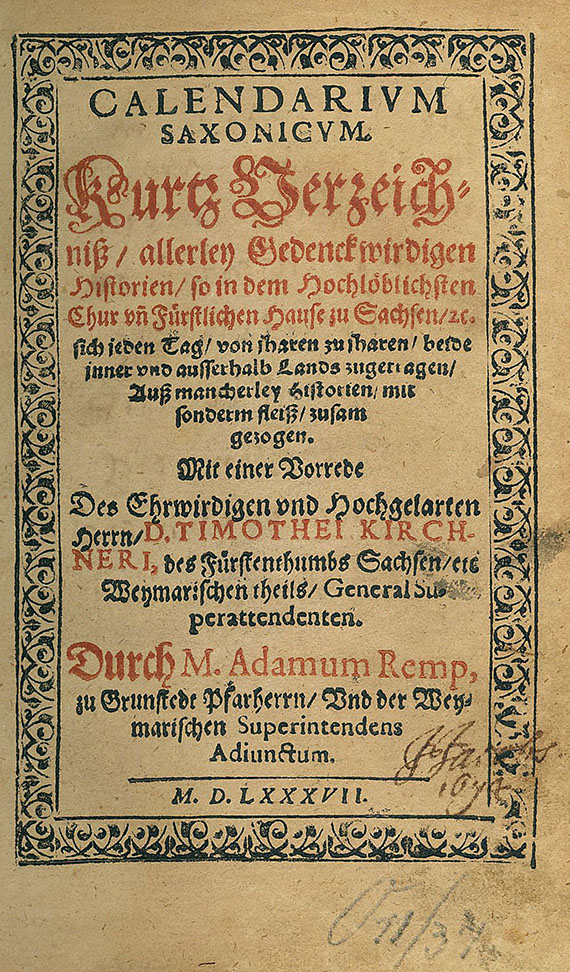 CALENDARIVM
SAXONICVM.
Kurtz Verzeich-
niß / allerley Gedenckwirdigen
Historien / so in dem Hochlöblichsten
Chur vñ Fürstlichen Hause zu Sachsen / ꝛc.
sich jeden Tag / von jharen zu jharen / beide
inner vnd ausserhalb Lands zugetragen /
Auß mancherley Historien / mit
sonderm fleiß / zusam
gezogen.
Mit einer Vorrede
Des Ehrwirdigen vnd Hochgelarten
Herrn / D. TIMOTHEI KIRCH-
NERI, des Fürstenthumbs Sachsen / etc
Weymarischen theils / General Su-
perattendenten.
Durch M. Adamum Remp,
zu Grunstedt Pfarherrn / Vnd der Wey-
marischen Superintendens
Adiunctum.
M. D. LXXXVII.